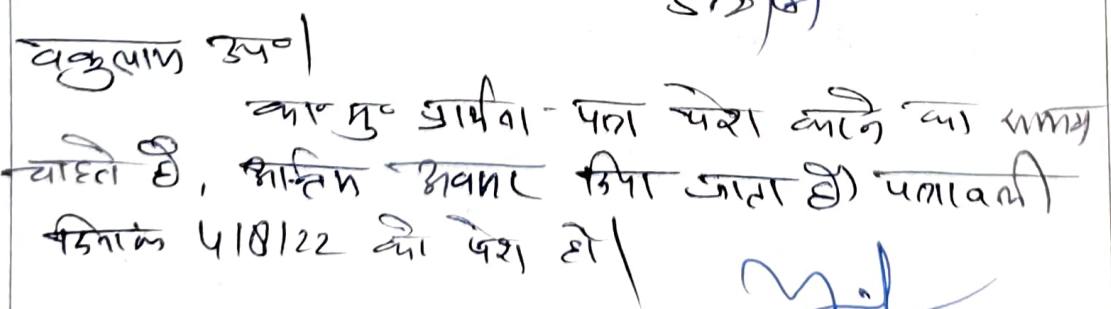 वकुलाय उप०।
का० मु० प्रार्थना-पत्र पेश करने का समय
चाहते है, अन्तिम अवसर दिया जाता है। पत्रावली
दिनांक 4/8/22 को पेश हो।